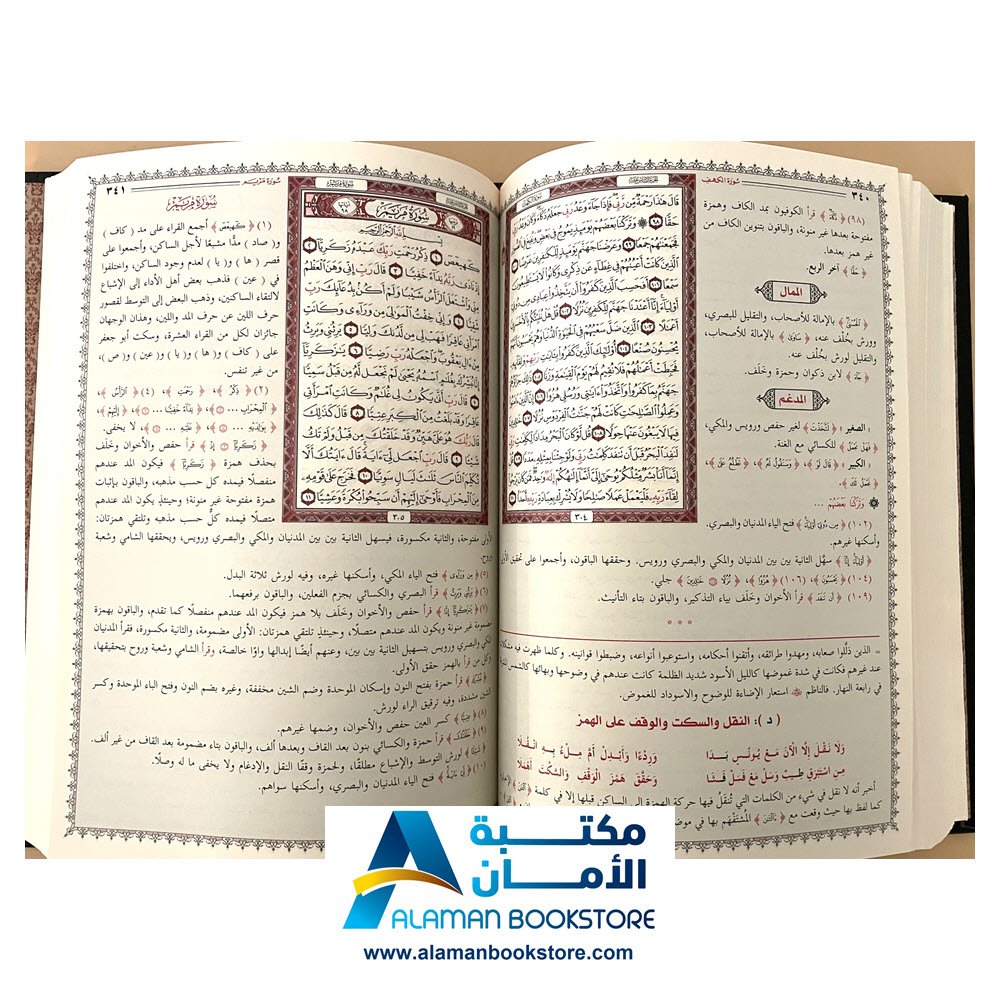 ٣٤٠
سُورَةُ الكَهْفِ
(٩٨) ﴿ دَكَّآءَ ﴾ قرأ الكوفيون بمد الكاف وهمزة
مفتوحة بعدها غير منونة، والباقون بتنوين الكاف من
غير همز بعدها.
﴿ حَقًّا ﴾ آخر الربع.
الممال
﴿ الْحُسْنَىٰ ﴾ بالإمالة للأصحاب، والتقليل للبصري،
وورش بخُلْف عنه، ﴿ سَاوَىٰ ﴾ بالإمالة للأصحاب،
والتقليل لورش بخُلْف عنه.
﴿ جَآءَ ﴾ لابن ذكوان وحمزة وخَلَف.
المدغم
« الصغير » لغير حفص ورويس والمكي،
للكسائي مع الغنة.
« الكبير »
(١٠٢) ﴿ مِن دُونِىٓ أَوْلِيَآءَ ﴾ فتح الياء المدنيان والبصري،
وأسكنها غيرهم.
﴿ أَوْلِيَآءَ إِنَّآ ﴾ سهَّل الثانية بين بين المدنيان والمكي والبصري ورويس. وحققها الباقون، وأجمعوا على تحقيق الأولى
(١٠٤) ﴿ يَحْسَبُونَ ﴾، (١٠٦) ﴿ هُزُوًا ﴾، ﴿ نُزُلًا ۝ خَٰلِدِينَ ﴾ جلي.
(١٠٩) ﴿ أَن تَنفَدَ ﴾ قرأ الأخوان وخَلَف بياء التذكير، والباقون بتاء التأنيث.
* * *
= الذين ذلَّلوا صعابه، ومهدوا طرائقه، وأتقنوا أحكامه، واستوعبوا أنواعه، وضبطوا قوانينه. وكلما ظهرت فيه مشكلات
عند غيرهم فكانت في شدة غموضها كالليل الأسود شديد الظلمة كانت عندهم في وضوحها وبهائها كالشمس
في رابعة النهار. فالناظم استعار الإضاءة للوضوح والاسوداد للغموض.
( د ): النقل والسكت والوقف على الهمز
وَلَا نَقْلَ إِلَّا الآنَ مَعْ يُونُسٍ بَدَا وَرِدْءًا وَأَبْدِلْ أُمَّ مِلْءُ بِهِ انْقُلَا
مِنِ اسْتَبْرَقٍ طِيبٌ وَسَلْ مَعْ فَسَلْ فَشَا وَحَقَّقَ هَمْزَ الْوَقْفِ وَالسَّكْتَ أَهْمَلَا
أخبر أنه لا نقل في شيء من الكلمات التي تُنقل فيها حركة الهمزة إلى الساكن قبلها إلا في كلمة
كما لفظ بها حيث وقعت مع المُسْتَفْهَم بها في
قَالَ هَٰذَا رَحْمَةٌ مِّن رَّبِّى فَإِذَا جَآءَ وَعْدُ رَبِّى جَعَلَهُۥ دَكَّآءَ وَكَانَ وَعْدُ رَبِّى
حَقًّا ٩٨ وَتَرَكْنَا بَعْضَهُمْ يَوْمَئِذٍ يَمُوجُ فِى بَعْضٍ وَنُفِخَ فِى ٱلصُّورِ
فَجَمَعْنَٰهُمْ جَمْعًا ٩٩ وَعَرَضْنَا جَهَنَّمَ يَوْمَئِذٍ لِّلْكَٰفِرِينَ عَرْضًا ١٠٠
ٱلَّذِينَ كَانَتْ أَعْيُنُهُمْ فِى غِطَآءٍ عَن ذِكْرِى وَكَانُوا۟ لَا يَسْتَطِيعُونَ
سَمْعًا ١٠١ أَفَحَسِبَ ٱلَّذِينَ كَفَرُوٓا۟ أَن يَتَّخِذُوا۟ عِبَادِى مِن دُونِىٓ
أَوْلِيَآءَ إِنَّآ أَعْتَدْنَا جَهَنَّمَ لِلْكَٰفِرِينَ نُزُلًا ١٠٢ قُلْ هَلْ نُنَبِّئُكُم بِٱلْأَخْسَرِينَ
أَعْمَٰلًا ١٠٣ ٱلَّذِينَ ضَلَّ سَعْيُهُمْ فِى ٱلْحَيَوٰةِ ٱلدُّنْيَا وَهُمْ يَحْسَبُونَ أَنَّهُمْ
يُحْسِنُونَ صُنْعًا ١٠٤ أُو۟لَٰٓئِكَ ٱلَّذِينَ كَفَرُوا۟ بِـَٔايَٰتِ رَبِّهِمْ وَلِقَآئِهِۦ
فَحَبِطَتْ أَعْمَٰلُهُمْ فَلَا نُقِيمُ لَهُمْ يَوْمَ ٱلْقِيَٰمَةِ وَزْنًا ١٠٥ ذَٰلِكَ جَزَآؤُهُمْ
جَهَنَّمُ بِمَا كَفَرُوا۟ وَٱتَّخَذُوٓا۟ ءَايَٰتِى وَرُسُلِى هُزُوًا ١٠٦ إِنَّ ٱلَّذِينَ ءَامَنُوا۟
وَعَمِلُوا۟ ٱلصَّٰلِحَٰتِ كَانَتْ لَهُمْ جَنَّٰتُ ٱلْفِرْدَوْسِ نُزُلًا ١٠٧ خَٰلِدِينَ
فِيهَا لَا يَبْغُونَ عَنْهَا حِوَلًا ١٠٨ قُل لَّوْ كَانَ ٱلْبَحْرُ مِدَادًا لِّكَلِمَٰتِ رَبِّى
لَنَفِدَ ٱلْبَحْرُ قَبْلَ أَن تَنفَدَ كَلِمَٰتُ رَبِّى وَلَوْ جِئْنَا بِمِثْلِهِۦ مَدَدًا ١٠٩ قُلْ
إِنَّمَآ أَنَا۠ بَشَرٌ مِّثْلُكُمْ يُوحَىٰٓ إِلَىَّ أَنَّمَآ إِلَٰهُكُمْ إِلَٰهٌ وَٰحِدٌ فَمَن كَانَ يَرْجُوا۟
لِقَآءَ رَبِّهِۦ فَلْيَعْمَلْ عَمَلًا صَٰلِحًا وَلَا يُشْرِكْ بِعِبَادَةِ رَبِّهِۦٓ أَحَدًۢا ١١٠
٣٠٤
سُورَةُ مَرْيَمَ
٣٤١
سُورَةُ مَرْيَمَ
بِسْمِ ٱللَّهِ ٱلرَّحْمَٰنِ ٱلرَّحِيمِ
كٓهيعٓصٓ ١ ذِكْرُ رَحْمَتِ رَبِّكَ عَبْدَهُۥ زَكَرِيَّآ ٢
إِذْ نَادَىٰ رَبَّهُۥ نِدَآءً خَفِيًّا ٣ قَالَ رَبِّ إِنِّى وَهَنَ ٱلْعَظْمُ
مِنِّى وَٱشْتَعَلَ ٱلرَّأْسُ شَيْبًا وَلَمْ أَكُنۢ بِدُعَآئِكَ رَبِّ
شَقِيًّا ٤ وَإِنِّى خِفْتُ ٱلْمَوَٰلِىَ مِن وَرَآءِى وَكَانَتِ
ٱمْرَأَتِى عَاقِرًا فَهَبْ لِى مِن لَّدُنكَ وَلِيًّا ٥ يَرِثُنِى وَيَرِثُ
مِنْ ءَالِ يَعْقُوبَ وَٱجْعَلْهُ رَبِّ رَضِيًّا ٦ يَٰزَكَرِيَّآ
إِنَّا نُبَشِّرُكَ بِغُلَٰمٍ ٱسْمُهُۥ يَحْيَىٰ لَمْ نَجْعَل لَّهُۥ مِن قَبْلُ سَمِيًّا
٧ قَالَ رَبِّ أَنَّىٰ يَكُونُ لِى غُلَٰمٌ وَكَانَتِ ٱمْرَأَتِى
عَاقِرًا وَقَدْ بَلَغْتُ مِنَ ٱلْكِبَرِ عِتِيًّا ٨ قَالَ كَذَٰلِكَ
قَالَ رَبُّكَ هُوَ عَلَىَّ هَيِّنٌ وَقَدْ خَلَقْتُكَ مِن قَبْلُ وَلَمْ تَكُ
شَيْـًٔا ٩ قَالَ رَبِّ ٱجْعَل لِّىٓ ءَايَةً قَالَ ءَايَتُكَ أَلَّا
تُكَلِّمَ ٱلنَّاسَ ثَلَٰثَ لَيَالٍ سَوِيًّا ١٠ فَخَرَجَ عَلَىٰ قَوْمِهِۦ
مِنَ ٱلْمِحْرَابِ فَأَوْحَىٰٓ إِلَيْهِمْ أَن سَبِّحُوا۟ بُكْرَةً وَعَشِيًّا ١١
٣٠٥
سُورَةُ مَرْيَمَ
(١) ﴿ كٓهيعٓصٓ ﴾ أجمع القراء على مد ( كاف )
و( صاد ) مدًّا مشبعًا لأجل الساكن، وأجمعوا على
قصر ( ها ) و( يا ) لعدم وجود الساكن، واختلفوا
في ( عين ) فذهب بعض أهل الأداء إلى الإشباع
لالتقاء الساكنين، وذهب البعض إلى التوسط لقصور
حرف اللين عن حرف المد واللين، وهذان الوجهان
جائزان لكل من القراء العشرة، وسكت أبو جعفر
على ( كاف ) و( ها ) و( يا ) و( عين ) و( ص )،
من غير تنفس.
(٢) ﴿ ذِكْرُ ﴾، ﴿ رَحْمَتِ ﴾، (٤) ﴿ ٱلرَّأْسُ ﴾،
لا يخفى.
﴿ زَكَرِيَّآ إِذْ ﴾ قرأ حفص والأخوان وخَلَف
بحذف همزة ﴿ زَكَرِيَّآ ﴾ فيكون المد عندهم
منفصلًا فيمده كل حسب مذهبه، والباقون بإثبات
همزة مفتوحة غير منونة؛ وحينئذٍ يكون المد عندهم
متصلًا فيمده كلٌّ حسب مذهبه وتلتقي همزتان:
الأولى مفتوحة، والثانية مكسورة، فيسهل الثانية بين بين المدنيان والمكي والبصري ورويس، ويحققها الشامي وشعبة
وروح.
(٥) ﴿ مِن وَرَآءِى ﴾ فتح الياء المكي، وأسكنها غيره، وفيه لورش ثلاثة البدل.
(٦) ﴿ يَرِثُنِى وَيَرِثُ ﴾ قرأ البصري والكسائي بجزم الفعلين، والباقون برفعهما.
(٧) ﴿ يَٰزَكَرِيَّآ إِنَّا ﴾ قرأ حفص والأخوان وخَلَف بلا همز فيكون المد عندهم منفصلًا كما تقدم، والباقون بهمزة
مضمومة غير منونة ويكون المد عندهم متصلًا، وحينئذٍ تلتقي همزتان: الأولى مضمومة، والثانية مكسورة، فقرأ المدنيان
والمكي والبصري ورويس بتسهيل الثانية بين بين، وعنهم أيضًا إبدالها واوًا خالصة، وقرأ الشامي وشعبة وروح بتحقيقها،
وكل من قرأ بالهمز حقق الأولى.
قرأ حمزة بفتح النون وإسكان الموحدة وضم الشين مخففة، وغيره بضم النون وفتح الباء الموحدة وكسر
الشين مشددة، وفيه ترقيق الراء لورش.
(٨) ﴿ عِتِيًّا ﴾ كسر العين حفص والأخوان، وضمها غيرهم.
(٩) ﴿ خَلَقْتُكَ ﴾ قرأ حمزة والكسائي بنون بعد القاف وبعدها ألف، والباقون بتاء مضمومة بعد القاف من غير ألف.
﴿ شَيْـًٔا ﴾ لورش التوسط والإشباع مطلقًا، ولحمزة وقفًا النقل والإدغام ولا يخفى ما له وصلًا.
(١٠) ﴿ لِّىٓ ءَايَةً ﴾ فتح الياء المدنيان والبصري، وأسكنها سواهم.
مكتبة
الأمــان
ALAMAN BOOKSTORE
www.alamanbookstore.com